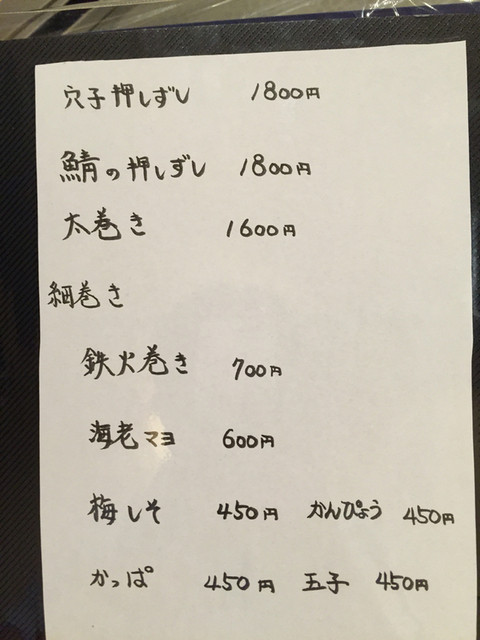 穴子押しずし 1800円
鯖の押しずし 1800円
太巻き 1600円
細巻き
鉄火巻き 700円
海老マヨ 600円
梅しそ 450円 かんぴょう 450円
かっぱ 450円 玉子 450円